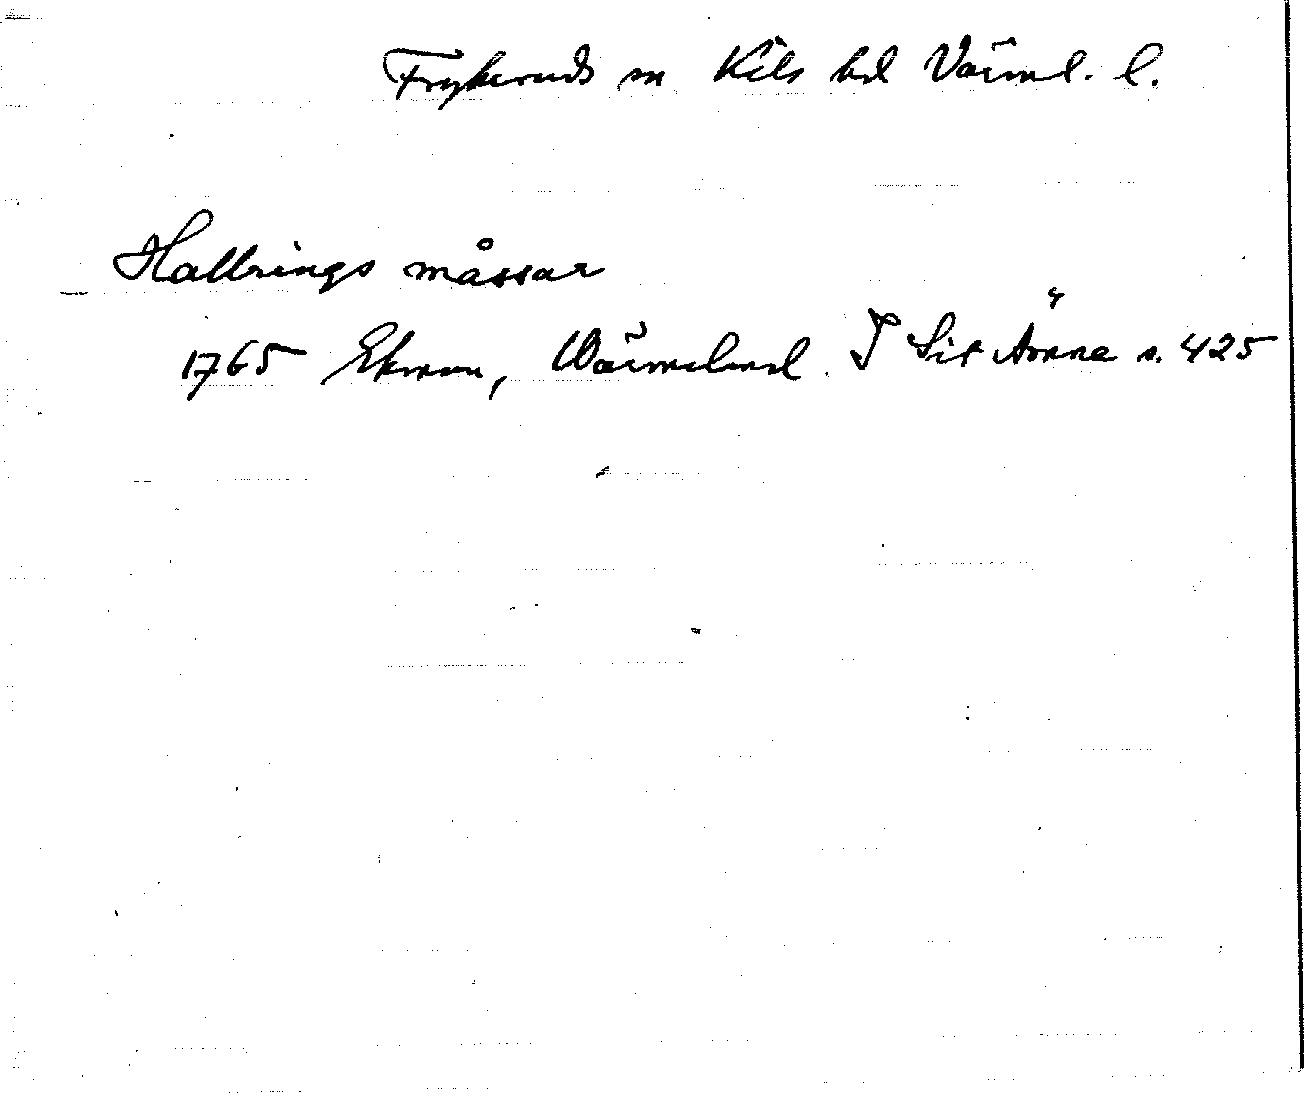 Frykeruds sn Kils hd Värml. l.
Hallrings måssar
1765 Ekman, Wärmeland. I Sit Ämne s. 425